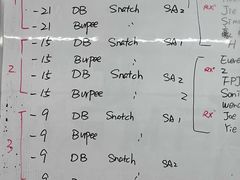 -21 DB Snatch SA1
-21 Burpee "
-15 DB Snatch SA1
2 -15 Burpee "
-15 DB Snatch SA2
-15 Burpee " 2
-9 DB Snatch SA1
-9 Burpee "
3 -9 DB Snatch SA2
RX Jie
H
2
RX Joe
Yie